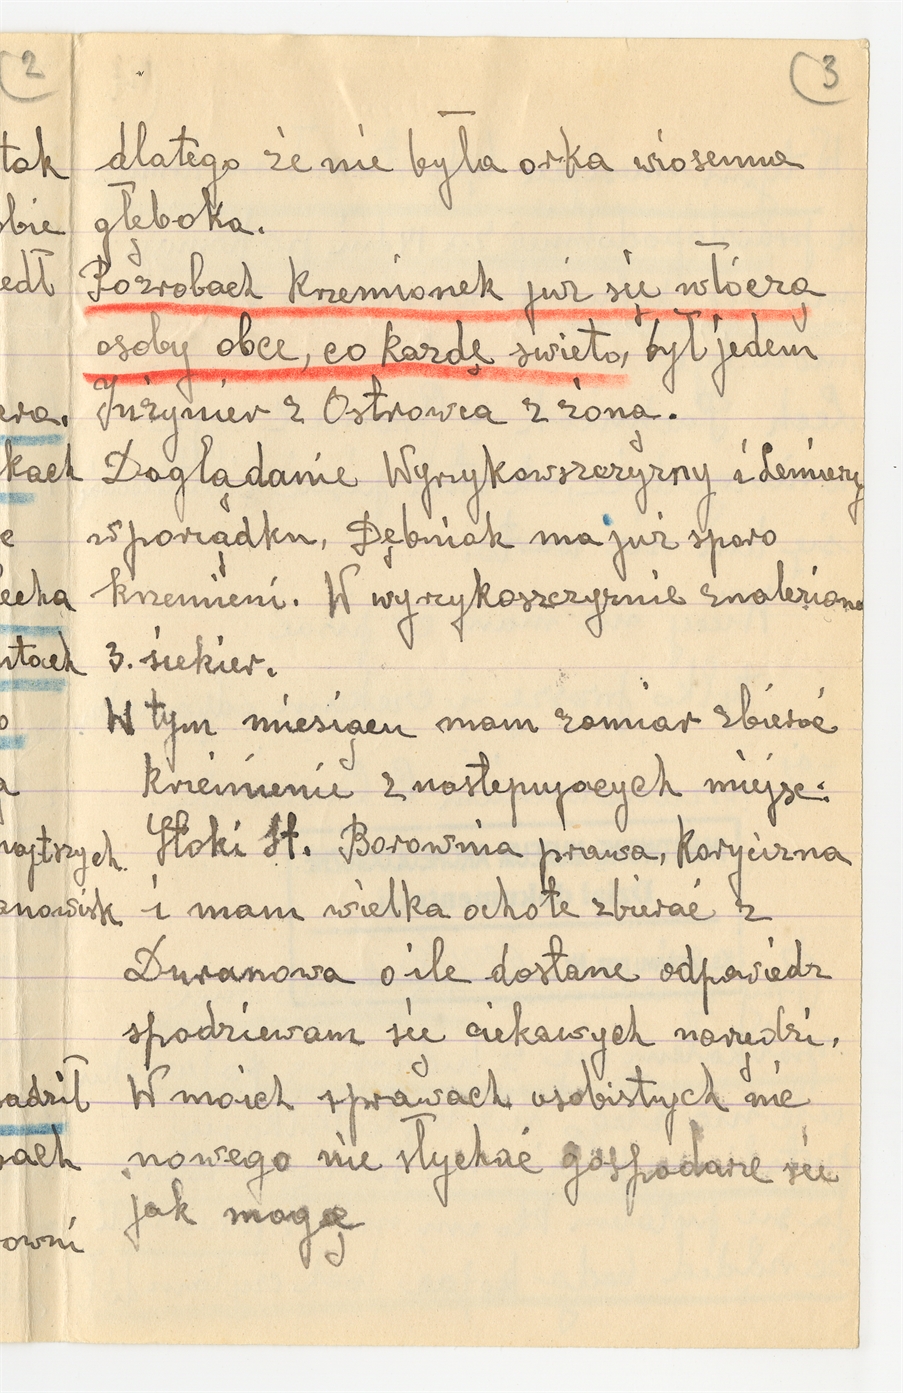 2
3
tak
bie
edł
era.
kach
e
echa
stach
o
a
nowisk
adził
sach
owni
dlatego że nie była orka wiosenna
głęboka.
Pozrobach krzemionek już się włóczą
osoby obce, co każdę swieto, był jedem
Inżynier z Ostrowca z żoną.
Doglądanie Wyrzykowszczyzny i Leniery
wporządku, Dębniak ma już sporo
krzemieni. W wyrzykoszczyznie znaleziono
3. siekier.
W tym miesiącu mam zamiar zbierać
krzemienie z nastepujacych miejsc:
Stoki St. Borownia prawa, Korycizna
i mam wielka ochote zbierać z
Duranowa oile dostane odpowiedz
spodziewam się ciekawych narzędzi,
W moich sprawach osobistych nie
nowego nie słychać gospodarze się
jak mogę